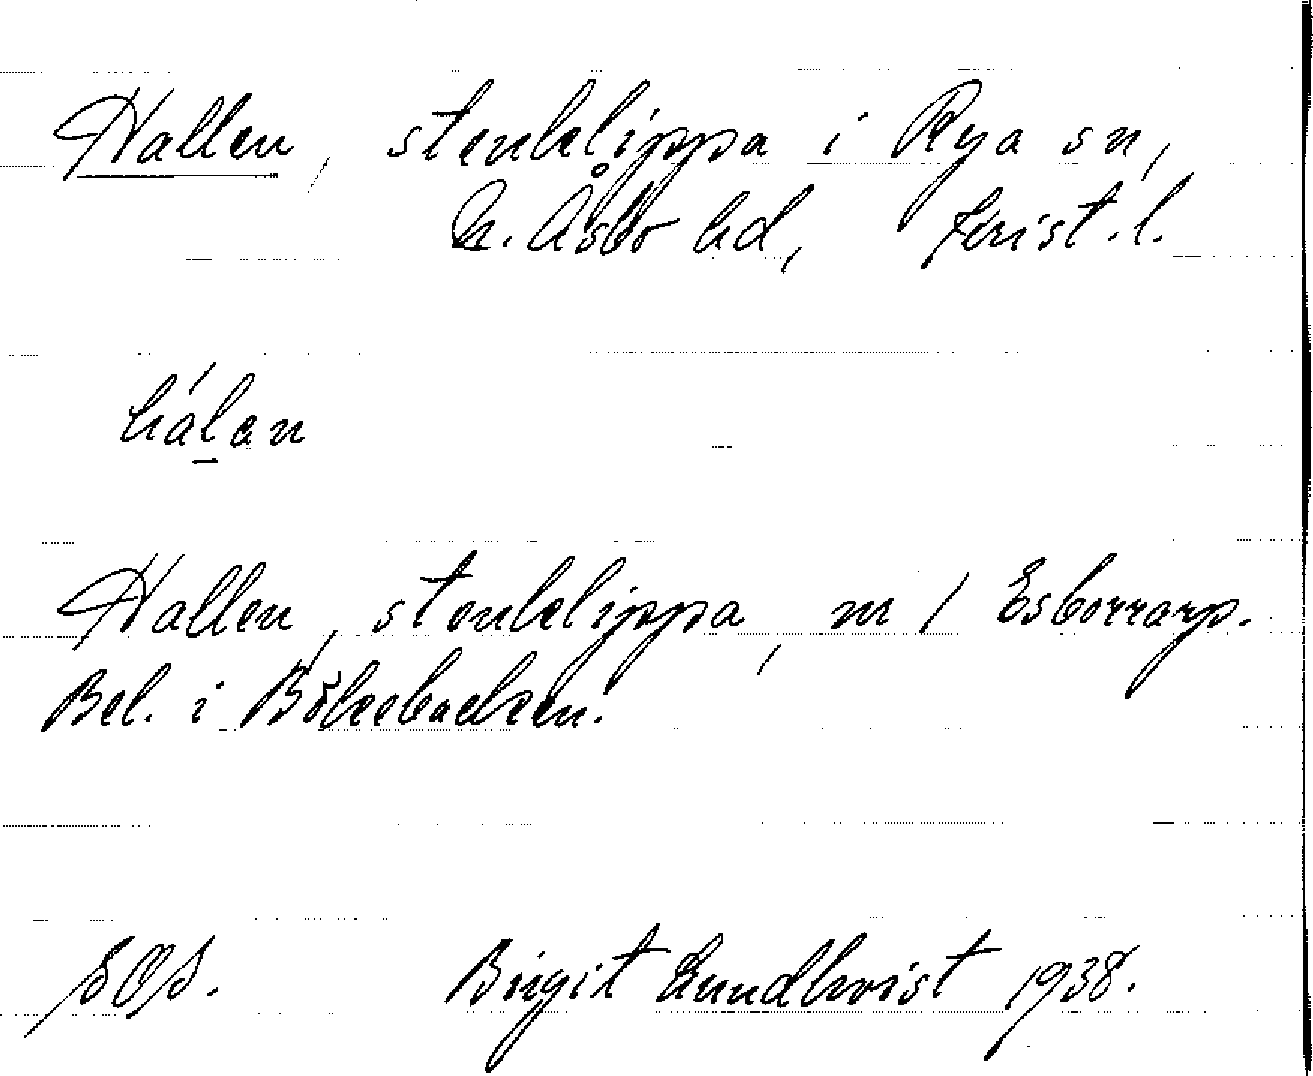 Hallen, stenklippa i Rya sn,
N. Åsbo hd, Krist. l.
hálan
Hallen, stenklippa, nr 1 Esborrarp.
Bel. i Bökebacken.
Birgit Lundkvist 1938.